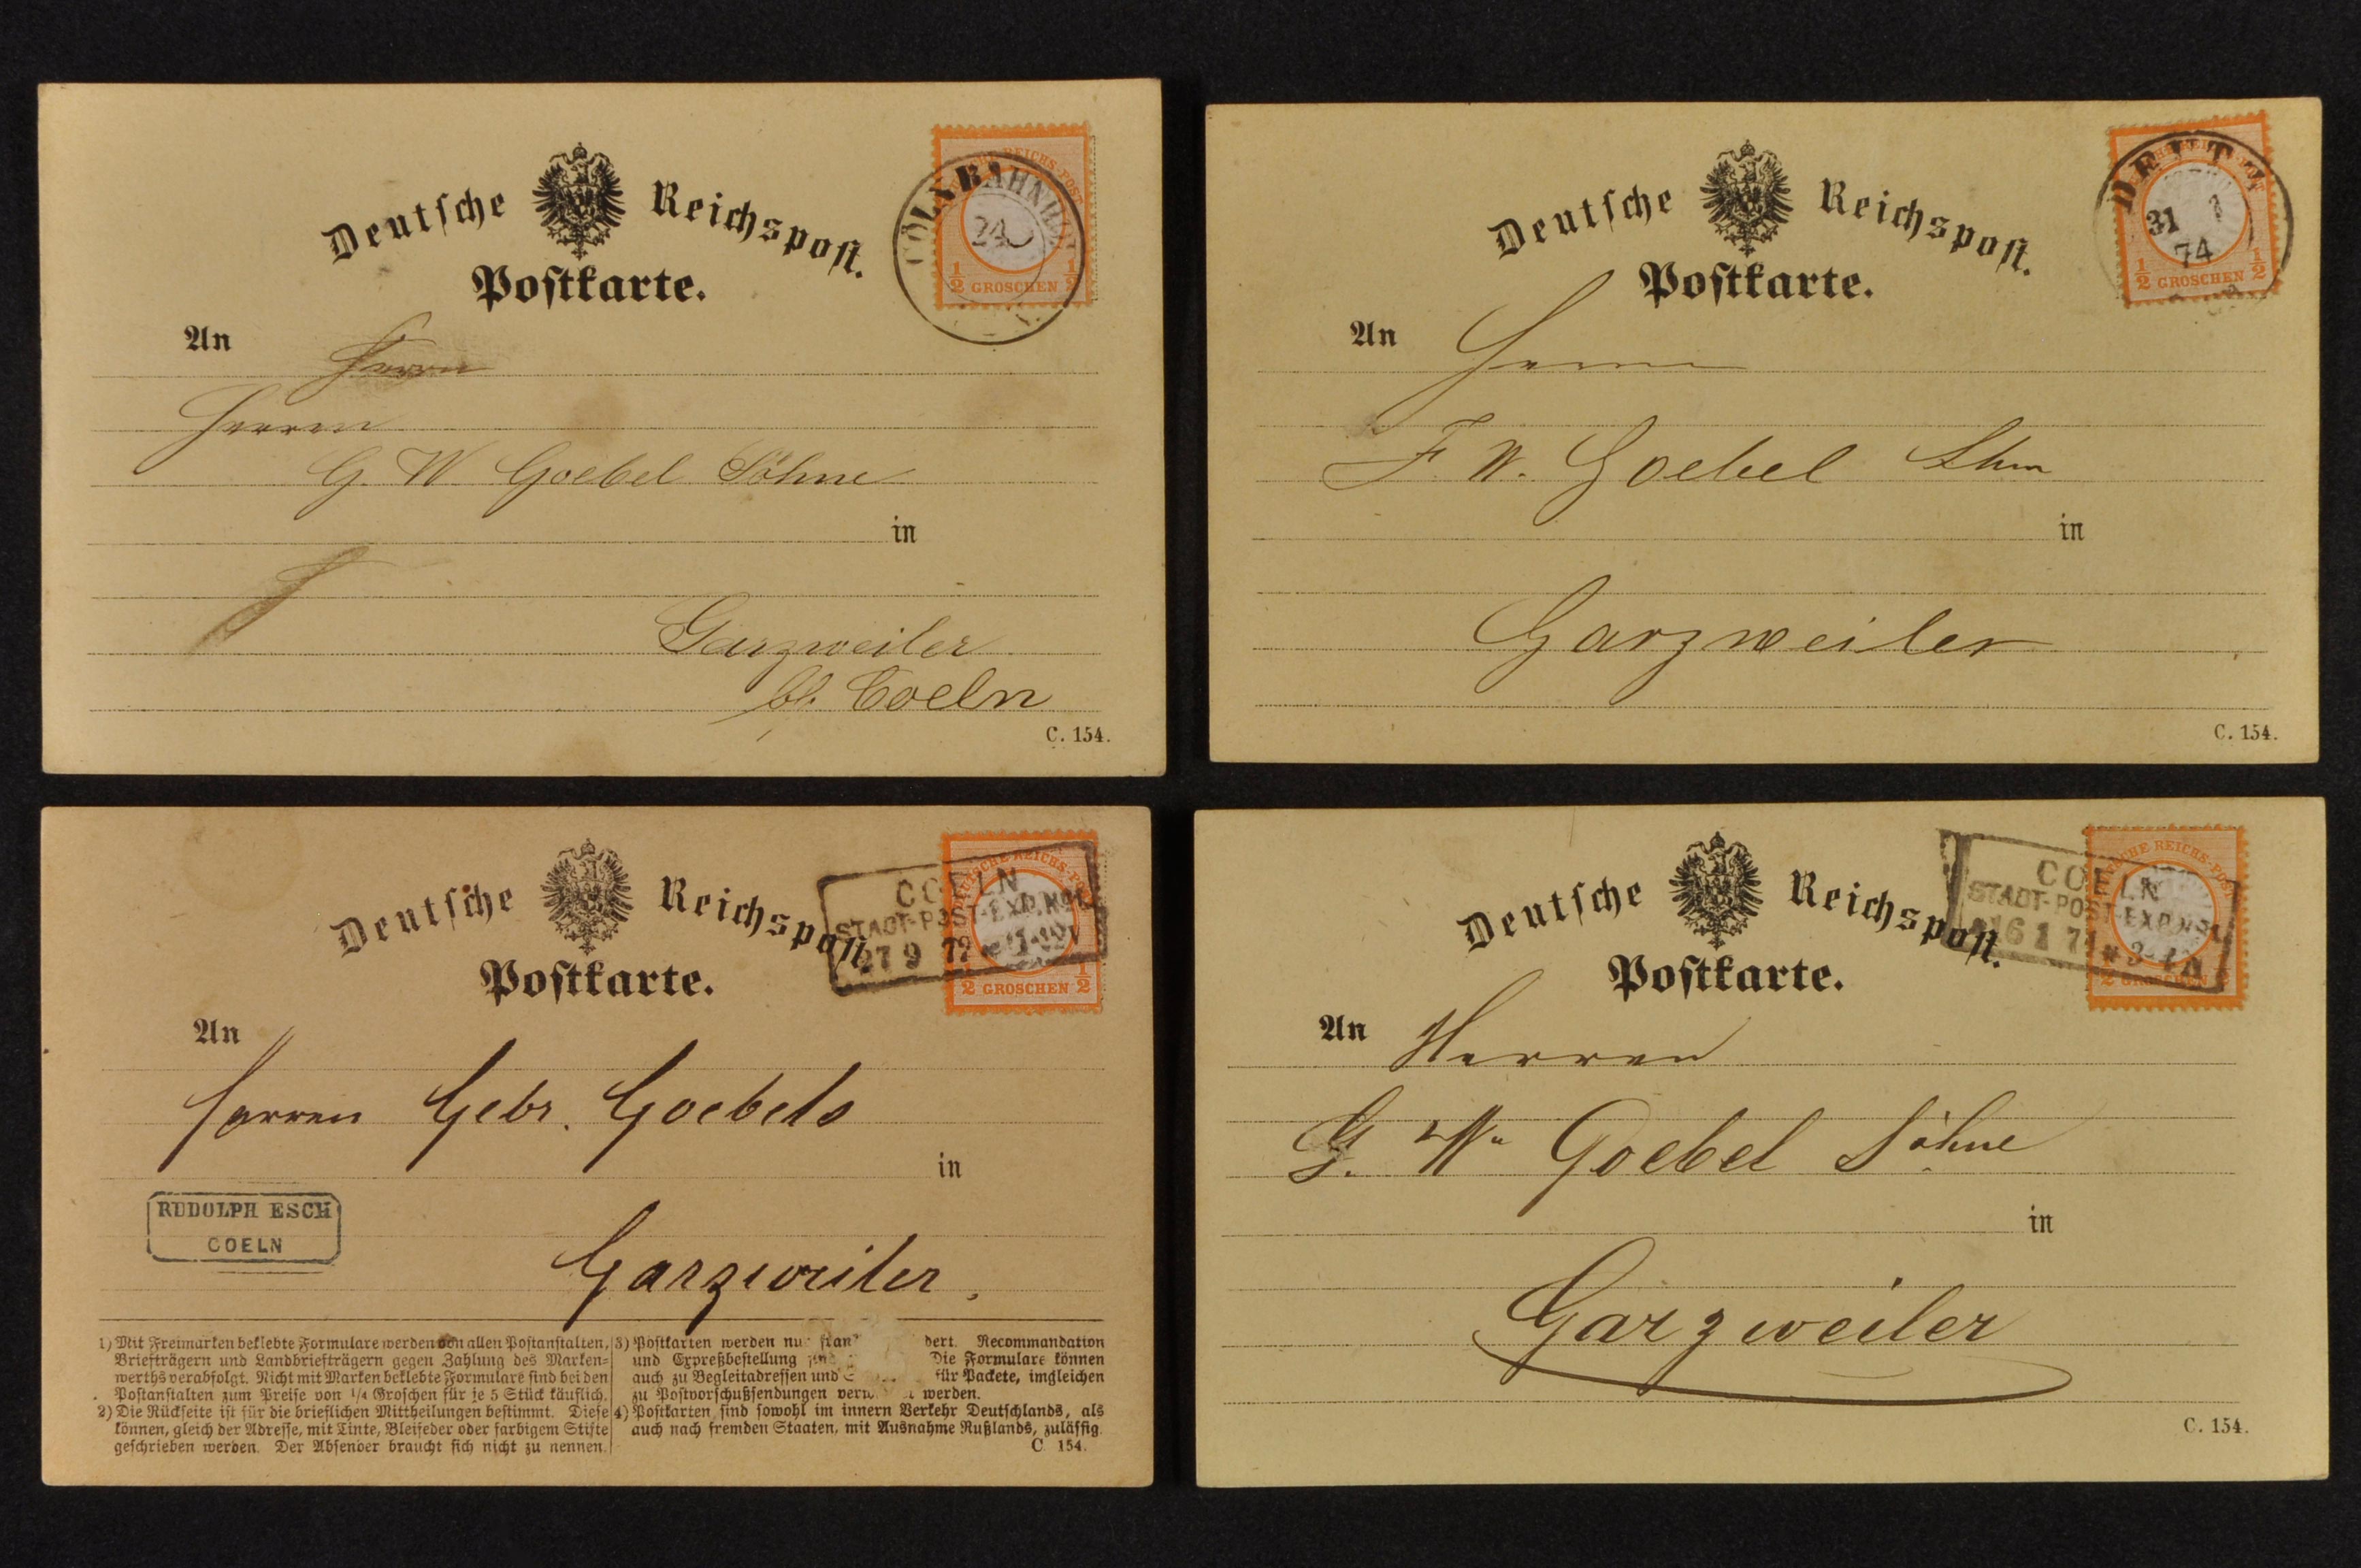 Deutsche Reichspost.
Postkarte.
DEUTSCHE REICHS-POST
CÖLN BAHNHOF
24
½ GROSCHEN ½
An Herrn
Herren
G. W Goebel Söhne
in
Garzweiler
b/. Coeln
C. 154.
Deutsche Reichspost.
Postkarte.
DEUTZ
31 1
74
½ GROSCHEN ½
An Herrn
F. W. Goebel
in
Garzweiler
C. 154.
Deutsche Reichspost.
Postkarte.
DEUTSCHE REICHS-POST
COELN
STADT-POST-EXP. No 1
27 9 72
½ GROSCHEN ½
An
Herren Gebr. Goebels
in
RUDOLPH ESCH
COELN
Garzweiler.
1) Mit Freimarken beklebte Formulare werden von allen Postanstalten,
Briefträgern und Landbriefträgern gegen Zahlung des Marken-
werths verabfolgt. Nicht mit Marken beklebte Formulare sind bei den
Postanstalten zum Preise von 1/4 Groschen für je 5 Stück käuflich.
2) Die Rückseite ist für die brieflichen Mittheilungen bestimmt. Diese
können, gleich der Adresse, mit Tinte, Bleifeder oder farbigem Stifte
geschrieben werden. Der Absender braucht sich nicht zu nennen.
3) Postkarten werden dert. Recommandation
und Expreßbestellung Die Formulare können
auch zu Begleitadressen und für Packete, imgleichen
zu Postvorschußsendungen werden.
4) Postkarten sind sowohl im innern Verkehr Deutschlands, als
auch nach fremden Staaten, mit Ausnahme Rußlands, zulässig.
C. 154.
Deutsche Reichspost.
Postkarte.
DEUTSCHE REICHS-POST
COELN
STADT-POST-EXP. No 1
16 1 74
½ GROSCHEN
An Herren
G. Wm Goebel Söhne
in
Garzweiler
C. 154.